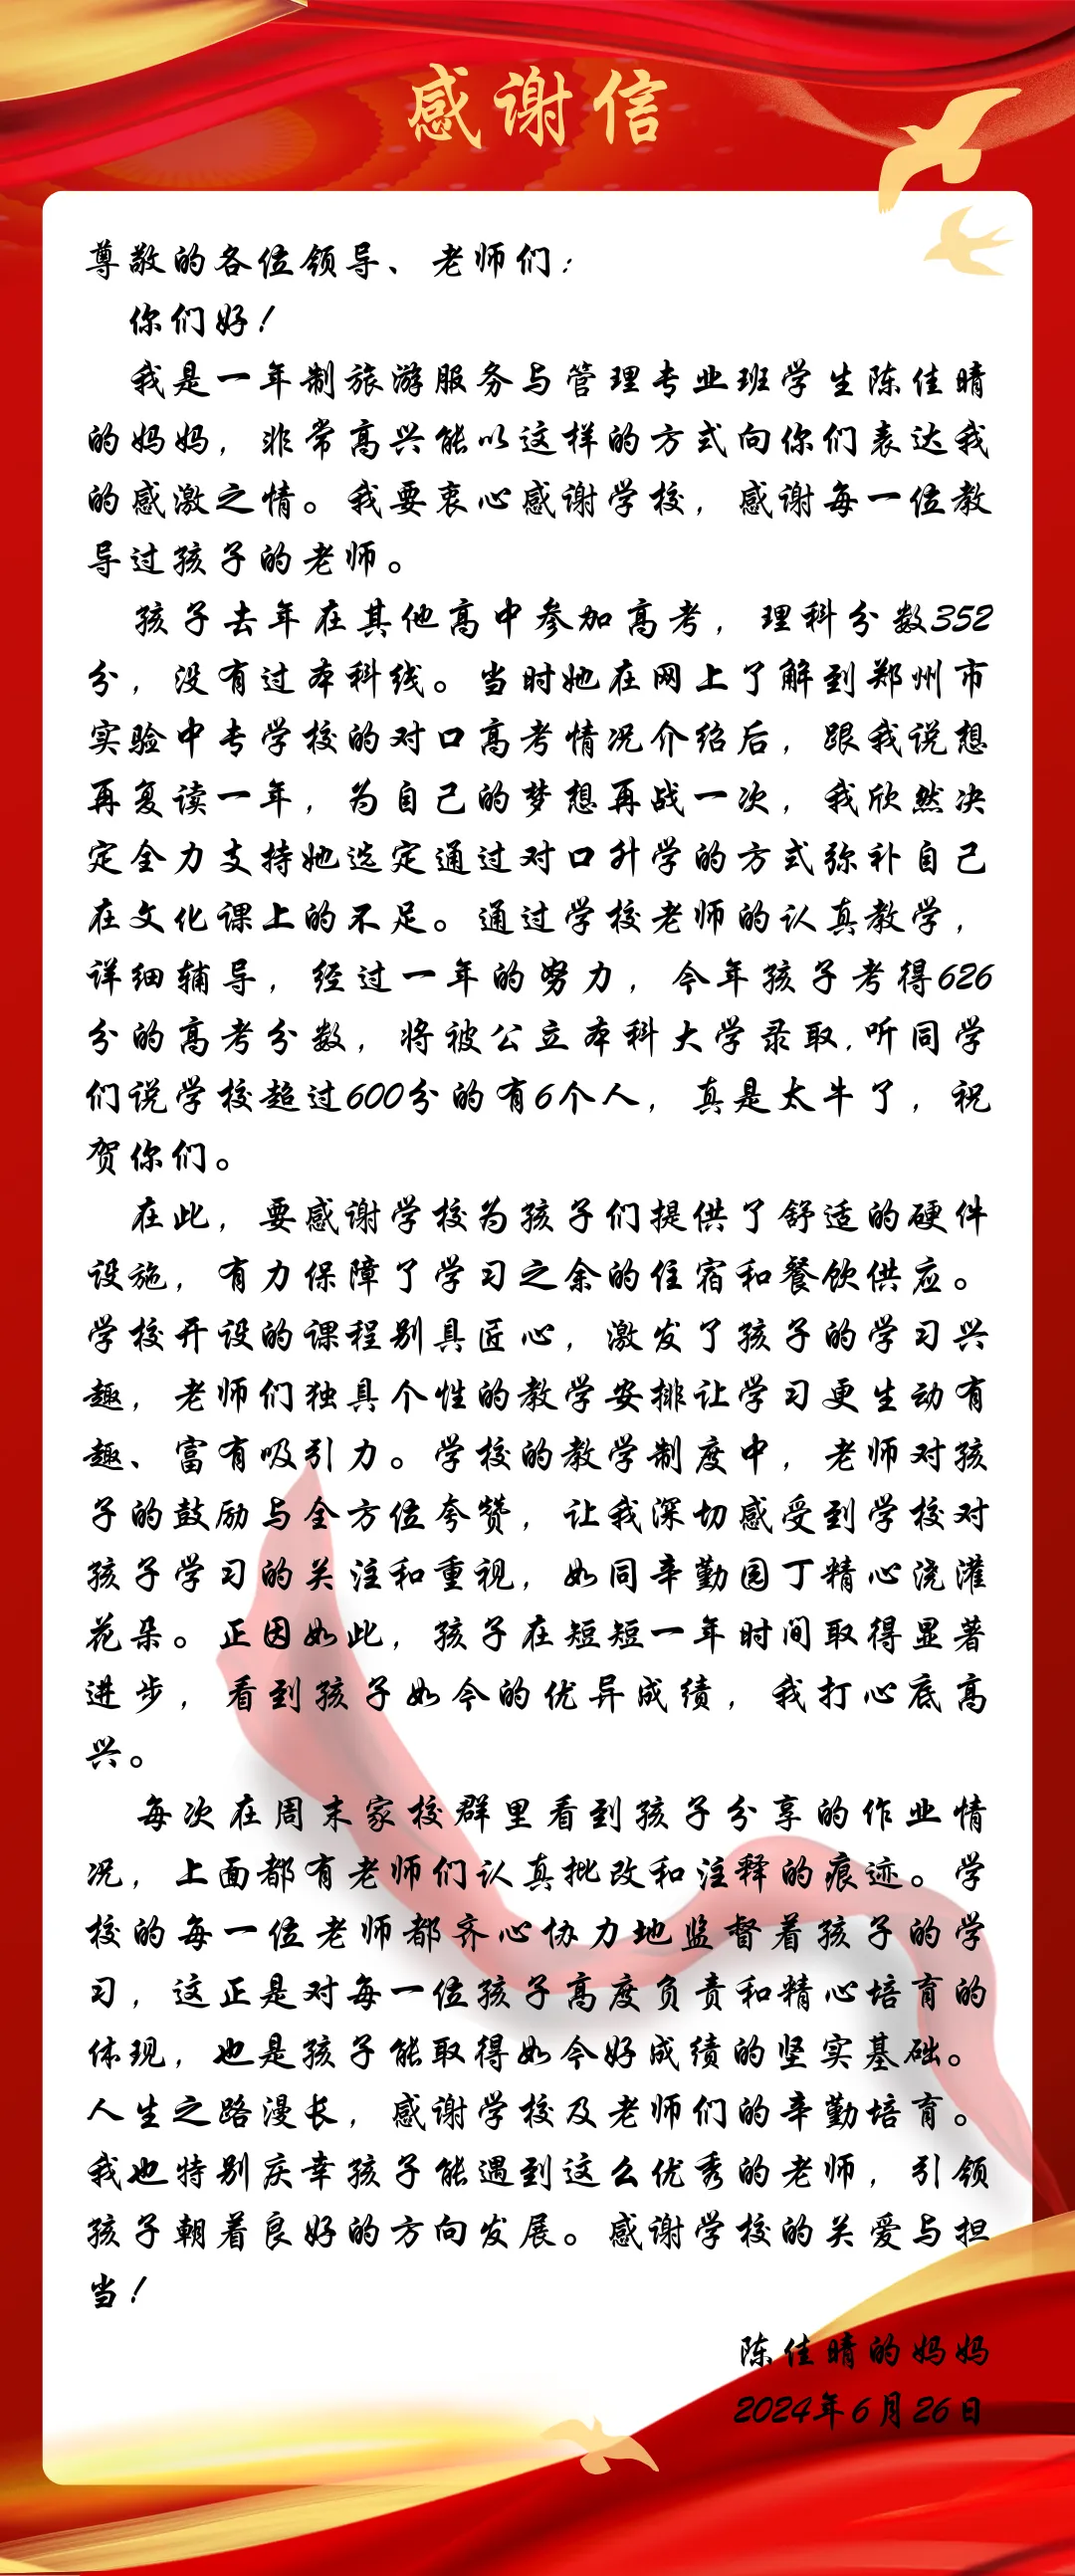 感谢信
尊敬的各位领导、老师们：
你们好！
我是一年制旅游服务与管理专业班学生陈佳晴
的妈妈，非常高兴能以这样的方式向你们表达我
的感激之情。我要衷心感谢学校，感谢每一位教
导过孩子的老师。
孩子去年在其他高中参加高考，理科分数352
分，没有过本科线。当时她在网上了解到郑州市
实验中专学校的对口高考情况介绍后，跟我说想
再复读一年，为自己的梦想再战一次，我欣然决
定全力支持她选定通过对口升学的方式弥补自己
在文化课上的不足。通过学校老师的认真教学，
详细辅导，经过一年的努力，今年孩子考得626
分的高考分数，将被公立本科大学录取,听同学
们说学校超过600分的有6个人，真是太牛了，祝
贺你们。
在此，要感谢学校为孩子们提供了舒适的硬件
设施，有力保障了学习之余的住宿和餐饮供应。
学校开设的课程别具匠心，激发了孩子的学习兴
趣，老师们独具个性的教学安排让学习更生动有
趣、富有吸引力。学校的教学制度中，老师对孩
子的鼓励与全方位夸赞，让我深切感受到学校对
孩子学习的关注和重视，如同辛勤园丁精心浇灌
花朵。正因如此，孩子在短短一年时间取得显著
进步，看到孩子如今的优异成绩，我打心底高
兴。
每次在周末家校群里看到孩子分享的作业情
况，上面都有老师们认真批改和注释的痕迹。学
校的每一位老师都齐心协力地监督着孩子的学
习，这正是对每一位孩子高度负责和精心培育的
体现，也是孩子能取得如今好成绩的坚实基础。
人生之路漫长，感谢学校及老师们的辛勤培育。
我也特别庆幸孩子能遇到这么优秀的老师，引领
孩子朝着良好的方向发展。感谢学校的关爱与担
当！
陈佳晴的妈妈
2024年6月26日